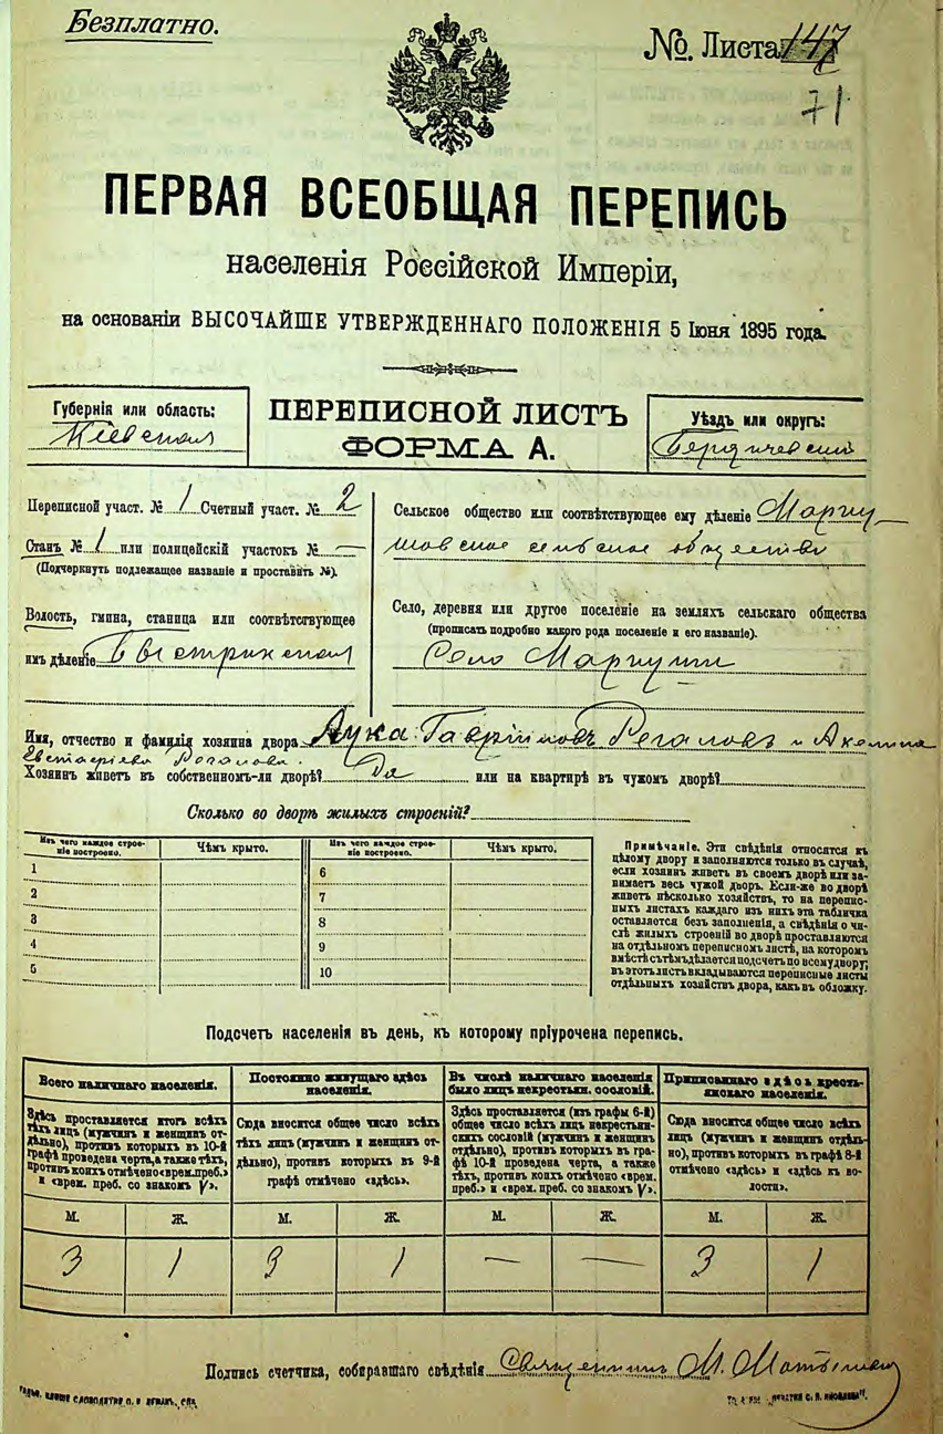 Безплатно.
№. Листа 147
71
ПЕРВАЯ ВСЕОБЩАЯ ПЕРЕПИСЬ
населенія Россійской Имперіи,
на основаніи ВЫСОЧАЙШЕ УТВЕРЖДЕННАГО ПОЛОЖЕНІЯ 5 Іюня 1895 года.
Губернія или область:
Кіевская
ПЕРЕПИСНОЙ ЛИСТЪ
ФОРМА А.
Уѣздъ или округъ:
Бердичевскій
Переписной участ. № 1 Счетный участ. № 2
Станъ № 1 или полицейскій участокъ № —
(Подчеркнуть подлежащее названіе и проставить №).
Волость, гмина, станица или соотвѣтствующее
имъ дѣленіе
Сельское общество или соотвѣтствующее ему дѣленіе Маргу-
сельское общество
Село, деревня или другое поселеніе на земляхъ сельскаго общества
(прописать подробно какого рода поселеніе и его названіе).
Село Маргулти
Имя, отчество и фамилія хозяина двора Лука Гавріиловъ Регаловъ и Акелина
Евстафіева Регалова.
Хозяинъ живетъ въ собственномъ-ли дворѣ? Да или на квартирѣ въ чужомъ дворѣ?
Сколько во дворѣ жилыхъ строеній?
Изъ чего каждое строе-
ніе построено.
Чѣмъ крыто.
Изъ чего каждое строе-
ніе построено.
Чѣмъ крыто.
1 6
2 7
3 8
4 9
5 10
Примѣчаніе. Эти свѣдѣнія относятся къ
цѣлому двору и заполняются только въ случаѣ,
если хозяинъ живетъ въ своемъ дворѣ или за-
нимаетъ весь чужой дворъ. Если-же во дворѣ
живетъ нѣсколько хозяйствъ, то на перепис-
ныхъ листахъ каждаго изъ нихъ эта табличка
оставляется безъ заполненія, а свѣдѣнія о чи-
слѣ жилыхъ строеній во дворѣ проставляются
на отдѣльномъ переписномъ листѣ, на которомъ
вмѣстѣ съ тѣмъ дѣлается подсчетъ по всему двору;
въ этотъ листъ вкладываются переписные листы
отдѣльныхъ хозяйствъ двора, какъ въ обложку.
Подсчетъ населенія въ день, къ которому пріурочена перепись.
Всего наличнаго населенія.
Здѣсь проставляется итогъ всѣхъ
тѣхъ лицъ (мужчинъ и женщинъ от-
дѣльно), противъ которыхъ въ 10-й
графѣ проведена черта, а также тѣхъ,
противъ коихъ отмѣчено «врем. преб.»
и «врем. преб. со знакомъ V».
Постоянно живущаго здѣсь
населенія.
Сюда вносится общее число всѣхъ
тѣхъ лицъ (мужчинъ и женщинъ от-
дѣльно), противъ которыхъ въ 9-й
графѣ отмѣчено «здѣсь».
Въ числѣ наличнаго населенія
было лицъ некрестьян. сословій.
Здѣсь проставляется (изъ графы 6-й)
общее число всѣхъ лицъ некрестьян-
скихъ сословій (мужчинъ и женщинъ
отдѣльно), противъ которыхъ въ гра-
фѣ 10-й проведена черта, а также
тѣхъ, противъ коихъ отмѣчено «врем.
преб.» и «врем. преб. со знакомъ V».
Приписаннаго здѣсь кресть-
янскаго населенія.
Сюда вносится общее число всѣхъ
лицъ (мужчинъ и женщинъ отдѣль-
но), противъ которыхъ въ графѣ 8-й
отмѣчено «здѣсь» и «здѣсь къ во-
лости».
М. Ж. М. Ж. М. Ж. М. Ж.
3 1 3 1 — — 3 1
Подпись счетчика, собиравшаго свѣдѣнія Священникъ М.